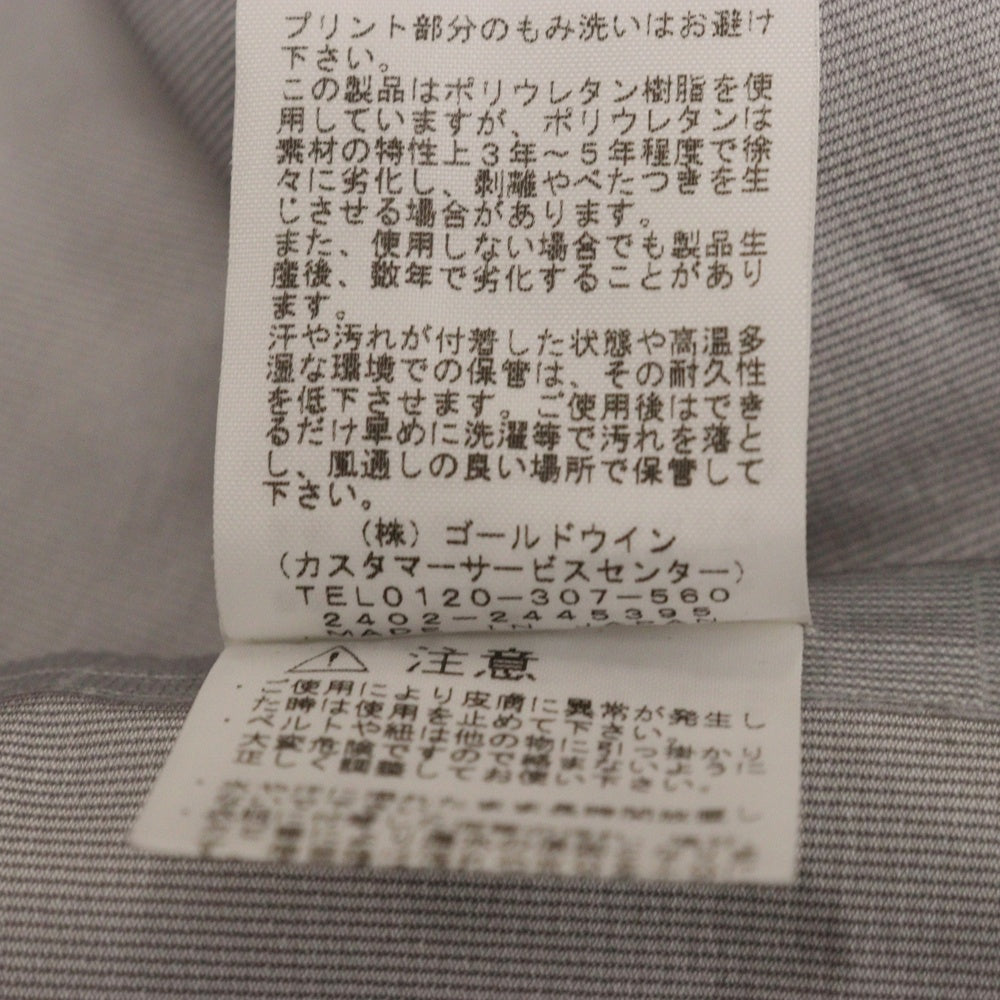 プリント部分のもみ洗いはお避け
下さい。
この製品はポリウレタン樹脂を使
用していますが、ポリウレタンは
素材の特性上3年～5年程度で徐
々に劣化し、剥離やべたつきを生
じさせる場合があります。
また、使用しない場合でも製品生
産後、数年で劣化することがあり
ます。
汗や汚れが付着した状態や高温多
湿な環境での保管は、その耐久性
を低下させます。ご使用後はでき
るだけ早めに洗濯等で汚れを落と
し、風通しの良い場所で保管して
下さい。
(株) ゴールドウイン
(カスタマーサービスセンター)
TEL0120-307-560
2402-2445395
MADE IN JAPAN
注意
ご使用により皮膚に異常が発生し
た時は使用を止めて下さい。